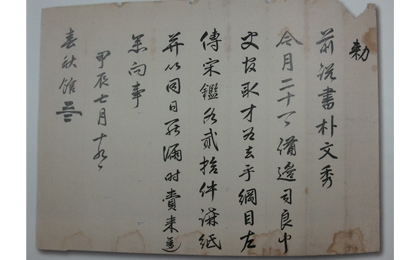 勅
前說書朴文秀
今月二十一日備邊司良中
史技取才爲去乎綱目左
傳宋鑑各貳拾件講紙
幷以同日罷漏時賫來進
來向事
甲辰七月十九日
春秋館